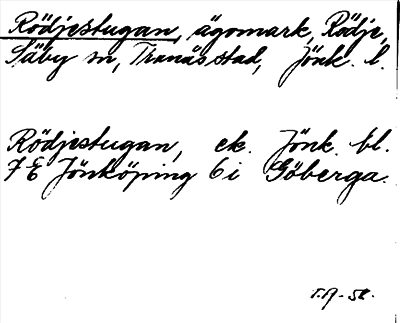 Rödjestugan, ägomark, Rödje,
Säby sn, Tranås stad, Jönk. l.
Rödjestugan, ek. Jönk. bl.
7 E Jönköping 6 i Göberga.